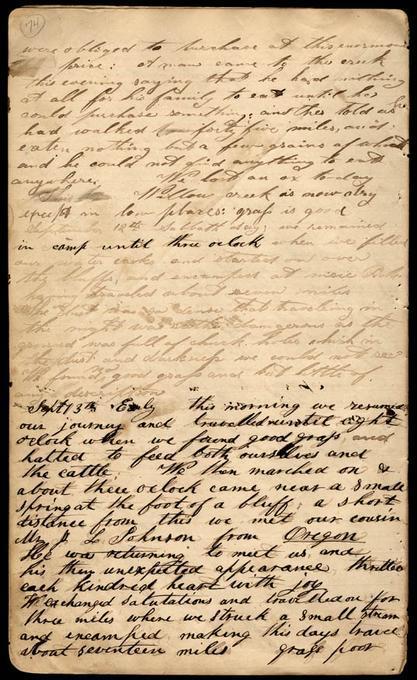 74
were obliged to purchase at this enormous
price: A man came to the creek
this evening saying that he had nothing
at all for his family to eat until he
could purchase something; and he told us he
had walked forty five miles, and
eaten nothing but a few grains of wheat
and he could not find anything to eat
anywhere. We lost an ox today
Willow creek is now dry
except in low places: grass is good
September 12th Sabbath day; we remained
in camp until three oclock when we filled
our water casks and started on over
the and encamped at nine Oclock
having traveled about seven miles
The dust was so dense that traveling in
the night was dangerous as the
ground was full of chuck holes which in
the dust and darkness we could not see
We found good grass and but little of
any
Sept 13th Early this morning we resumed
our journey and travelled until eight
oclock when we found good grass and
halted to feed both ourselves and
the cattle. We then marched on &
about three oclock came near a small
spring at the foot of a bluff; a short
distance from this we met our cousin
Mr J. L Johnson from Oregon
He was returning to meet us and
his then unexpected appearance thrilled
each kindred heart with joy
We exchanged salutations and travelled on for
three miles where we struck a small stream
and encamped making this days travel
about seventeen miles grass poor